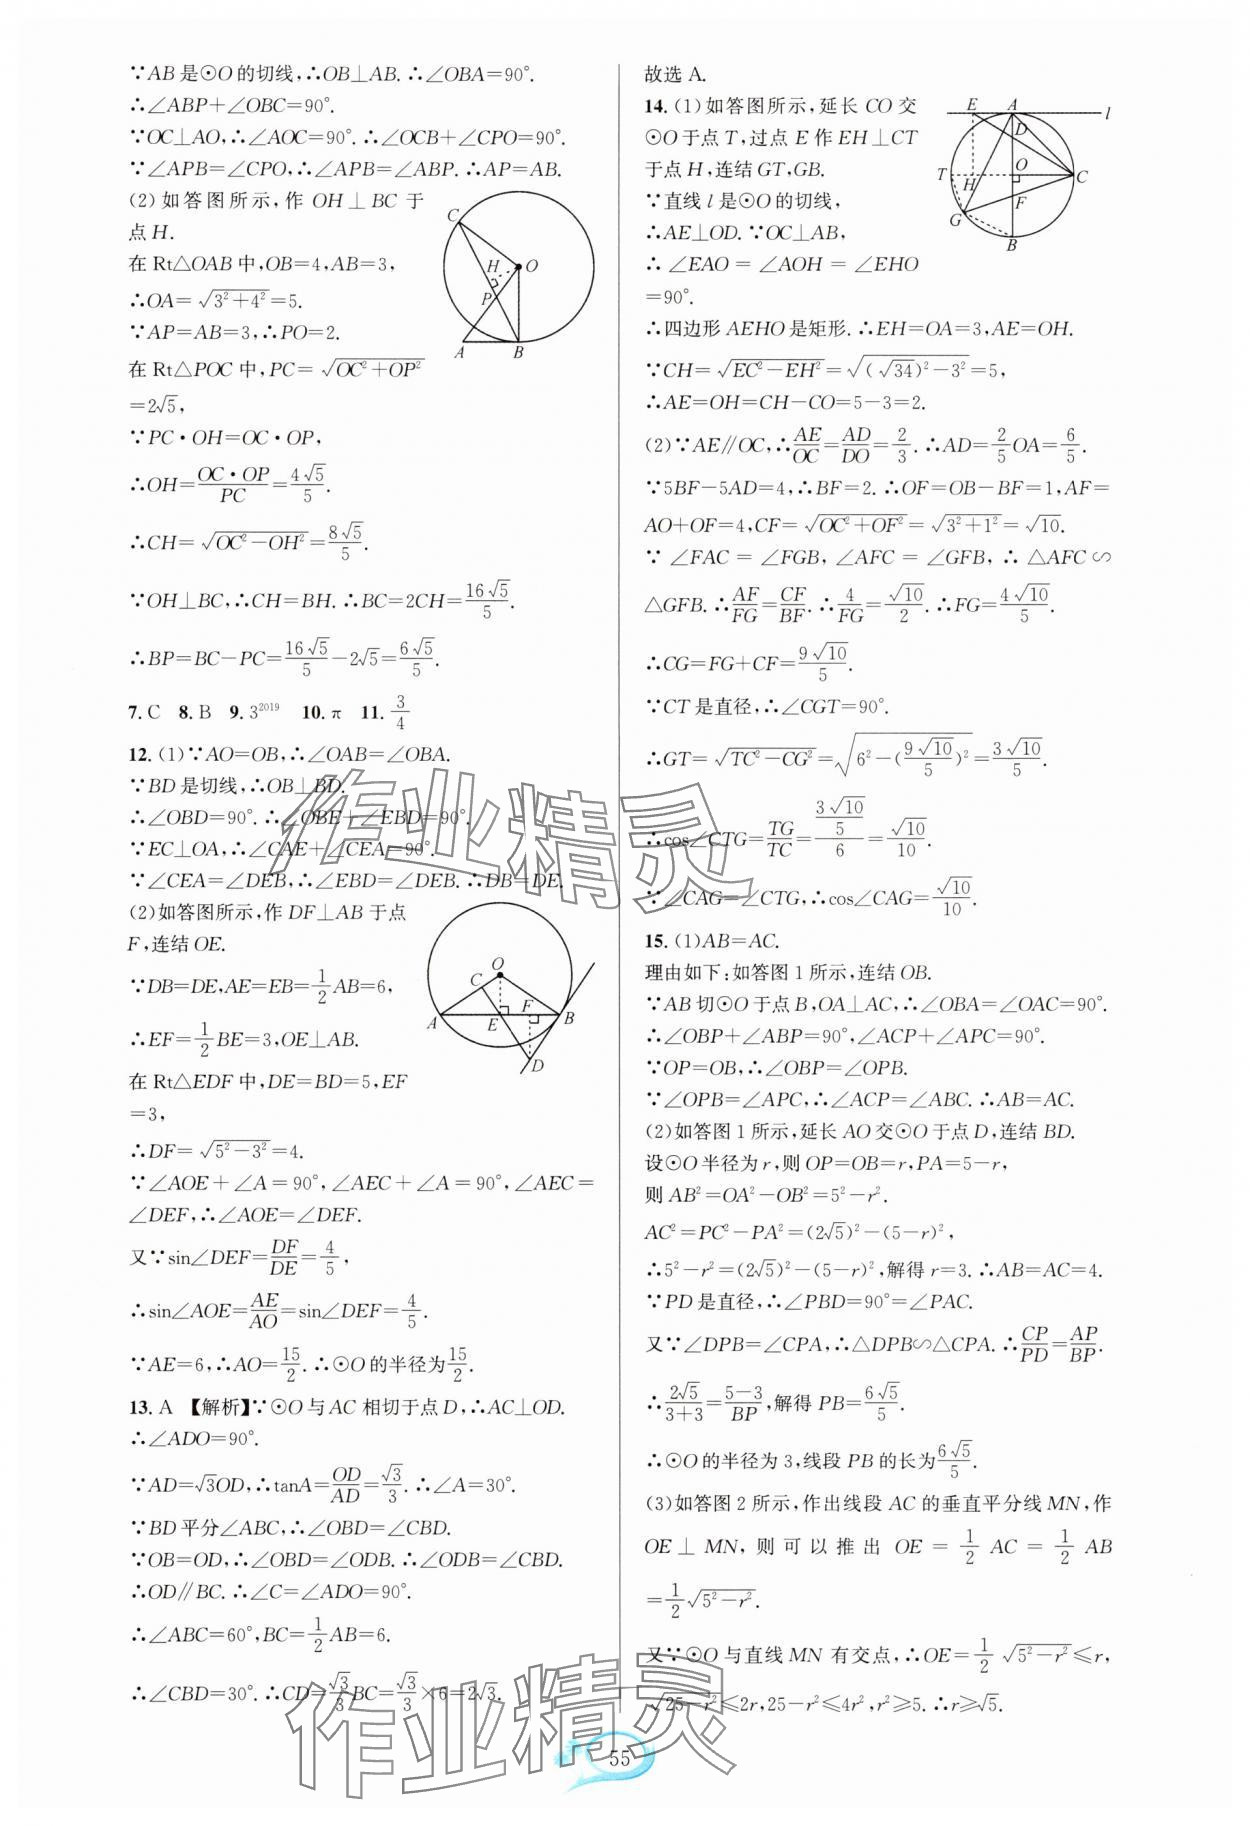 ∵AB是⊙O的切线,∴OB⊥AB.∴∠OBA=90°.
∴∠ABP+∠OBC=90°.
∵OC⊥AO,∴∠AOC=90°.∴∠OCB+∠CPO=90°.
∵∠APB=∠CPO,∴∠APB=∠ABP.∴AP=AB.
(2)如答图所示,作OH⊥BC于
点H.
在Rt△OAB中,OB=4,AB=3,
∴OA=√(3²+4²)=5.
∵AP=AB=3,∴PO=2.
在Rt△POC中,PC=√(OC²+OP²)
=2√5,
∵PC·OH=OC·OP,
∴OH=OC·OP/PC=4√5/5.
∴CH=√(OC²-OH²)=8√5/5.
∵OH⊥BC,∴CH=BH.∴BC=2CH=16√5/5.
∴BP=BC-PC=16√5/5-2√5=6√5/5.
C
H
O
P
A
B
7.C 8.B 9.3²⁰¹⁹ 10.π 11.3/4
12.(1)∵AO=OB,∴∠OAB=∠OBA.
∵BD是切线,∴OB⊥BD.
∴∠OBD=90°.∴∠OBE+∠EBD=90°.
∵EC⊥OA,∴∠CAE+∠CEA=90°.
∵∠CEA=∠DEB,∴∠EBD=∠DEB.∴DB=DE.
(2)如答图所示,作DF⊥AB于点
F,连结OE.
∵DB=DE,AE=EB=1/2AB=6,
∴EF=1/2BE=3,OE⊥AB.
在Rt△EDF中,DE=BD=5,EF
=3,
∴DF=√(5²-3²)=4.
∵∠AOE+∠A=90°,∠AEC+∠A=90°,∠AEC=
∠DEF,∴∠AOE=∠DEF.
又∵sin∠DEF=DF/DE=4/5,
∴sin∠AOE=AE/AO=sin∠DEF=4/5.
∵AE=6,∴AO=15/2.∴⊙O的半径为15/2.
O
C
A
E
F
B
D
13.A 【解析】∵⊙O与AC相切于点D,∴AC⊥OD.
∴∠ADO=90°.
∵AD=√3OD,∴tanA=OD/AD=√3/3.∴∠A=30°.
∵BD平分∠ABC,∴∠OBD=∠CBD.
∵OB=OD,∴∠OBD=∠ODB.∴∠ODB=∠CBD.
∴OD∥BC.∴∠C=∠ADO=90°.
∴∠ABC=60°,BC=1/2AB=6.
∴∠CBD=30°.∴CD=√3/3BC=√3/3×6=2√3.
故选A.
14.(1)如答图所示,延长CO交
⊙O于点T,过点E作EH⊥CT
于点H,连结GT,GB.
∵直线l是⊙O的切线,
∴AE⊥OD.∵OC⊥AB,
∴∠EAO=∠AOH=∠EHO
=90°.
∴四边形AEHO是矩形.∴EH=OA=3,AE=OH.
∵CH=√(EC²-EH²)=√((√34)²-3²)=5,
∴AE=OH=CH-CO=5-3=2.
(2)∵AE∥OC,∴AE/OC=AD/DO=2/3.∴AD=2/5OA=6/5.
∵5BF-5AD=4,∴BF=2.∴OF=OB-BF=1,AF=
AO+OF=4,CF=√(OC²+OF²)=√(3²+1²)=√10.
∵∠FAC=∠FGB,∠AFC=∠GFB,∴△AFC∽
△GFB.∴AF/FG=CF/BF.∴4/FG=√10/2.∴FG=4√10/5.
∴CG=FG+CF=9√10/5.
∵CT是直径,∴∠CGT=90°.
∴GT=√(TC²-CG²)=√(6²-(9√10/5)²)=3√10/5.
∴cos∠CTG=TG/TC=(3√10/5)/6=√10/10.
∵∠CAG=∠CTG,∴cos∠CAG=√10/10.
E
A
l
D
T
H
O
C
F
G
B
15.(1)AB=AC.
理由如下:如答图1所示,连结OB.
∵AB切⊙O于点B,OA⊥AC,∴∠OBA=∠OAC=90°.
∴∠OBP+∠ABP=90°,∠ACP+∠APC=90°.
∵OP=OB,∴∠OBP=∠OPB.
∵∠OPB=∠APC,∴∠ACP=∠ABC.∴AB=AC.
(2)如答图1所示,延长AO交⊙O于点D,连结BD.
设⊙O半径为r,则OP=OB=r,PA=5-r,
则AB²=OA²-OB²=5²-r².
AC²=PC²-PA²=(2√5)²-(5-r)²,
∴5²-r²=(2√5)²-(5-r)²,解得r=3.∴AB=AC=4.
∵PD是直径,∴∠PBD=90°=∠PAC.
又∵∠DPB=∠CPA,∴△DPB∽△CPA.∴CP/PD=AP/BP.
∴2√5/(3+3)=(5-3)/BP,解得PB=6√5/5.
∴⊙O的半径为3,线段PB的长为6√5/5.
(3)如答图2所示,作出线段AC的垂直平分线MN,作
OE⊥MN,则可以推出OE=1/2AC=1/2AB
=1/2√(5²-r²).
又∵⊙O与直线MN有交点,∴OE=1/2√(5²-r²)≤r,
√(25-r²)≤2r,25-r²≤4r²,r²≥5.∴r≥√5.
作业精灵
作业精灵
55